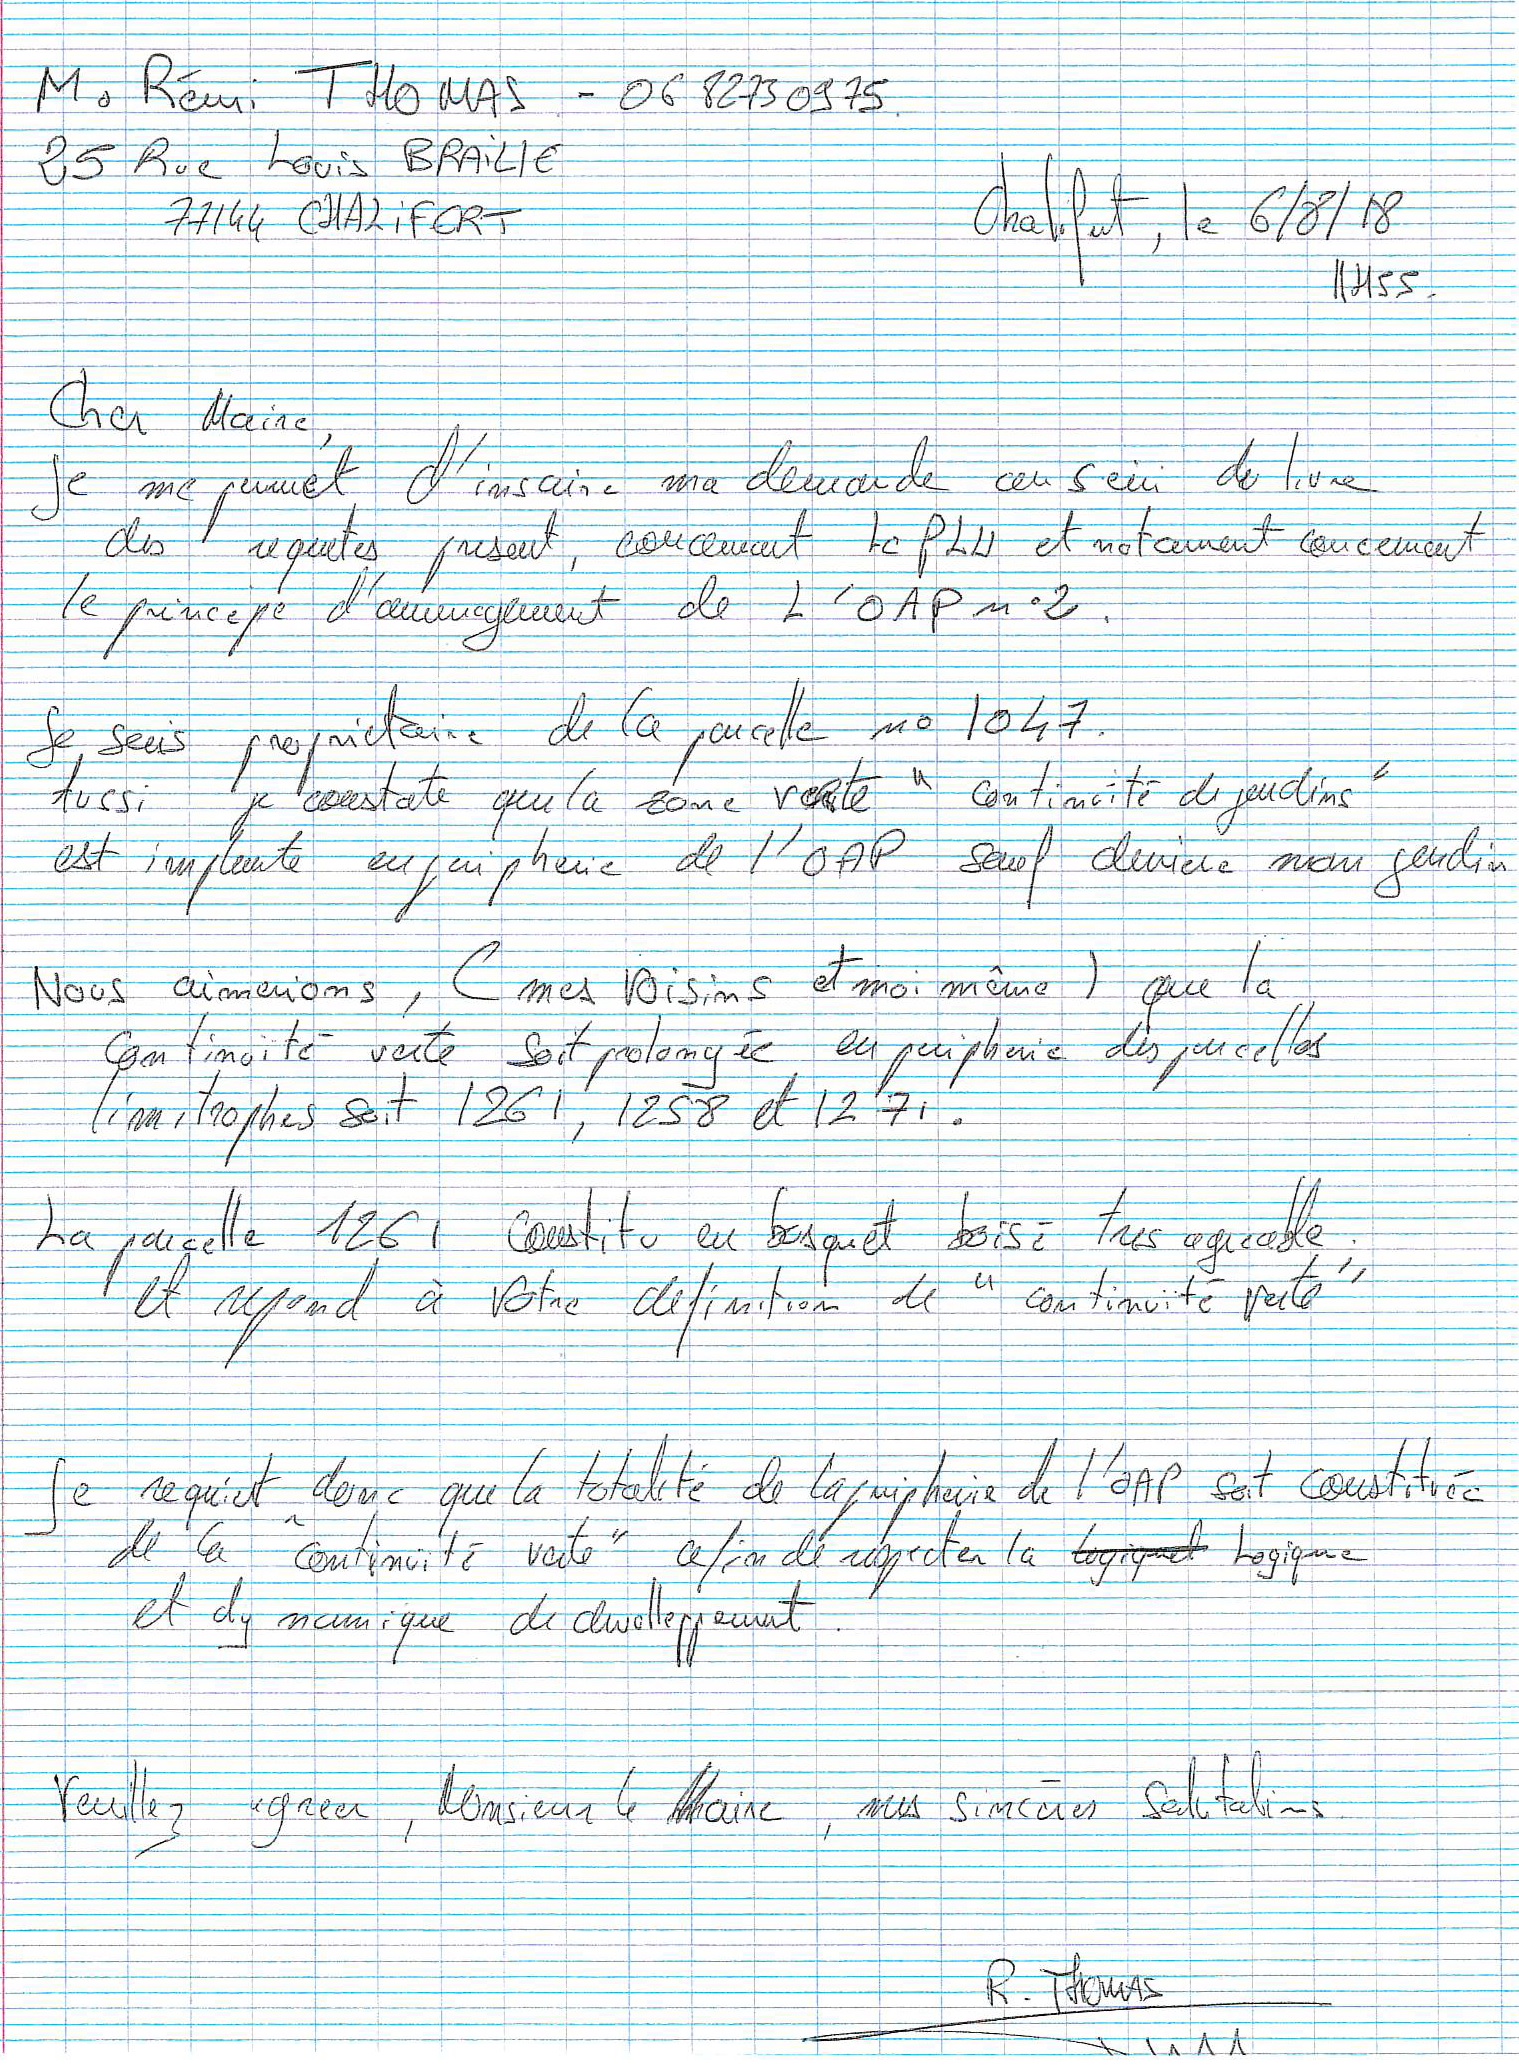 M. Rémi THOMAS - 0682730975
25 Rue Louis BRAILLE
77144 CHALIFERT
Chalifert, le 6/8/18
11H55.
Cher Maire,
Je me permet d'inscrire ma demande au sein du livre
des requetes présent, concernant Le PLU et notament concernant
le principe d'amenagement de L'OAP n°2.
Je suis propriétaire de la parcelle no 1047.
Aussi je constate que la zone verte "continuité de jardins"
est implanté en peripherie de l'OAP sauf derriere mon jardin
Nous aimerions, (mes voisins et moi même) que la
continuité verte soit prolongée en peripherie des parcelles
limitrophes soit 1261, 1258 et 1271.
La parcelle 1261 constitu un bosquet boisé tres agreable.
et repond à votre definition de "continuité verte"
Je requiet donc que la totalité de la peripherie de l'OAP soit constituée
de la "continuité verte" afin de respecter la logique Logique
et dynamique de developpement.
Veuillez agreer, Monsieur le Maire, mes sincères salutations.
R. THOMAS